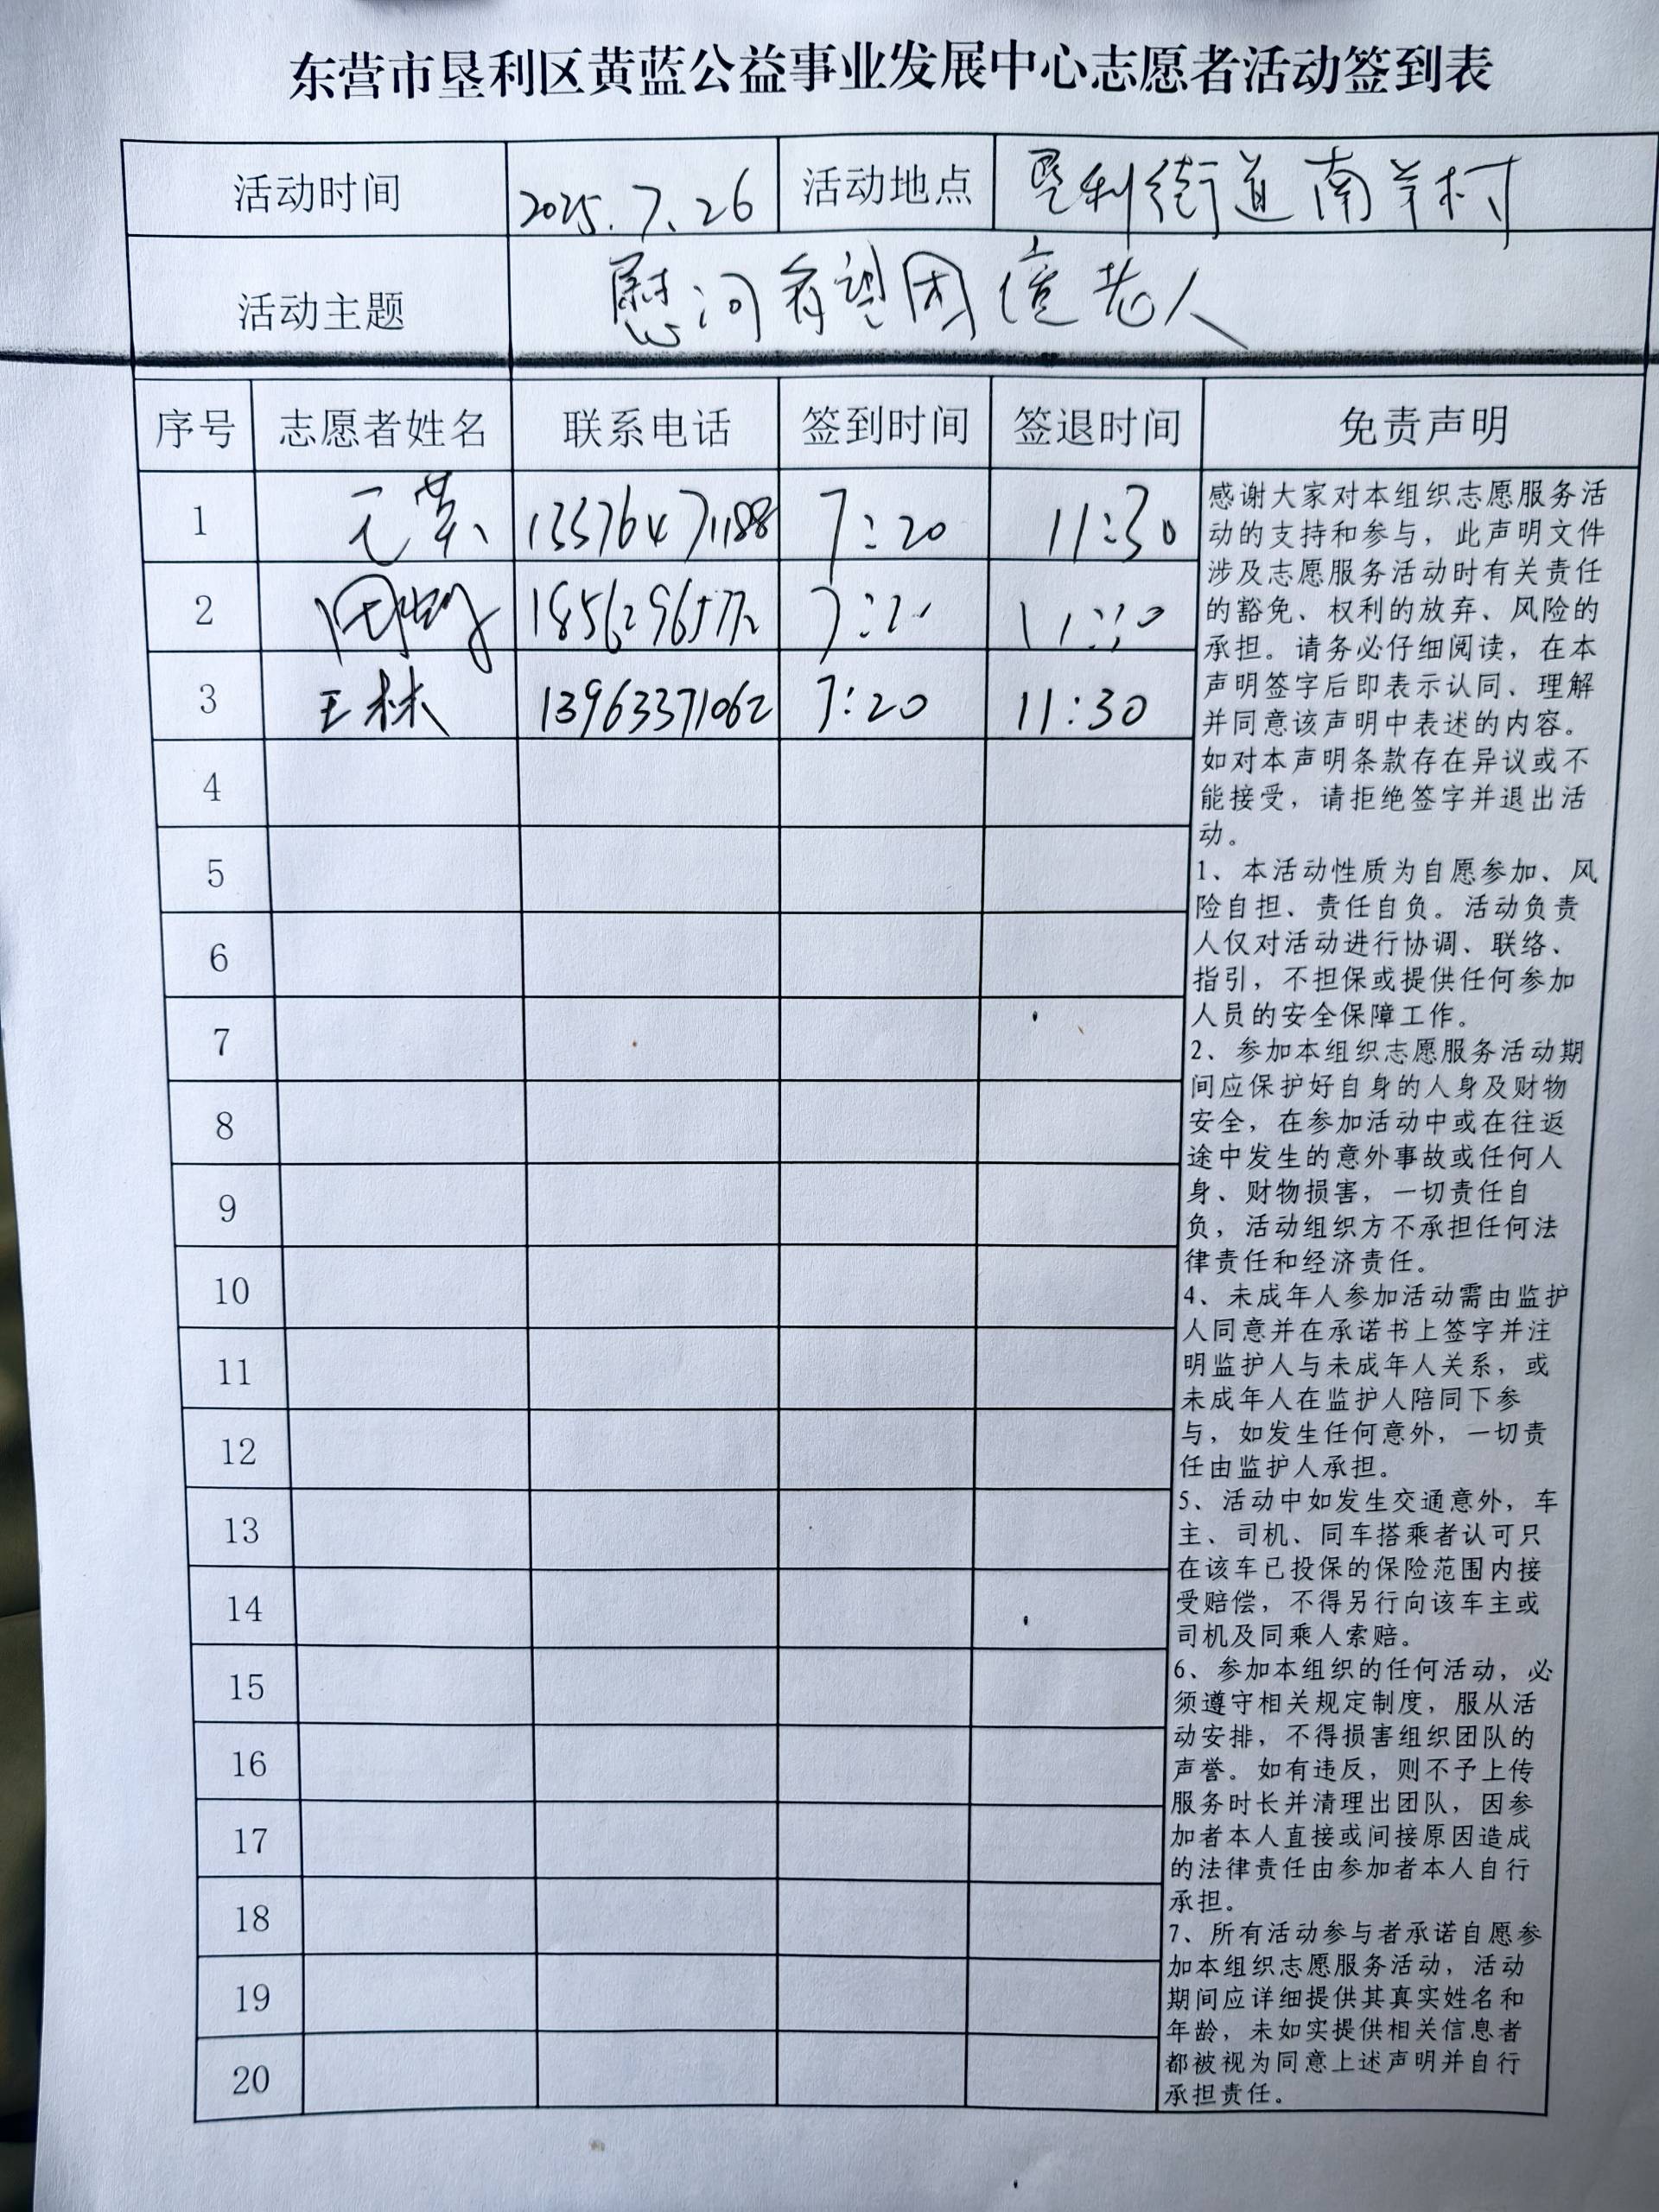 东营市垦利区黄蓝公益事业发展中心志愿者活动签到表
活动时间 2025.7.26 活动地点 垦利街道南羊村
活动主题 慰问看望困境老人
序号 志愿者姓名 联系电话 签到时间 签退时间 免责声明
1 7:20 11:30
2
3 王林 13963371062 7:20 11:30
4
5
6
7
8
9
10
11
12
13
14
15
16
17
18
19
20
感谢大家对本组织志愿服务活
动的支持和参与，此声明文件
涉及志愿服务活动时有关责任
的豁免、权利的放弃、风险的
承担。请务必仔细阅读，在本
声明签字后即表示认同、理解
并同意该声明中表述的内容。
如对本声明条款存在异议或不
能接受，请拒绝签字并退出活
动。
1、本活动性质为自愿参加、风
险自担、责任自负。活动负责
人仅对活动进行协调、联络、
指引，不担保或提供任何参加
人员的安全保障工作。
2、参加本组织志愿服务活动期
间应保护好自身的人身及财物
安全，在参加活动中或在往返
途中发生的意外事故或任何人
身、财物损害，一切责任自
负，活动组织方不承担任何法
律责任和经济责任。
4、未成年人参加活动需由监护
人同意并在承诺书上签字并注
明监护人与未成年人关系，或
未成年人在监护人陪同下参
与，如发生任何意外，一切责
任由监护人承担。
5、活动中如发生交通意外，车
主、司机、同车搭乘者认可只
在该车已投保的保险范围内接
受赔偿，不得另行向该车主或
司机及同乘人索赔。
6、参加本组织的任何活动，必
须遵守相关规定制度，服从活
动安排，不得损害组织团队的
声誉。如有违反，则不予上传
服务时长并清理出团队，因参
加者本人直接或间接原因造成
的法律责任由参加者本人自行
承担。
7、所有活动参与者承诺自愿参
加本组织志愿服务活动，活动
期间应详细提供其真实姓名和
年龄，未如实提供相关信息者
都被视为同意上述声明并自行
承担责任。